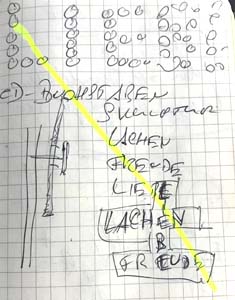 CD-BUCHSTABEN
LACHEN
FREUDE
LIEBE
LACHEN
B
FREUDE